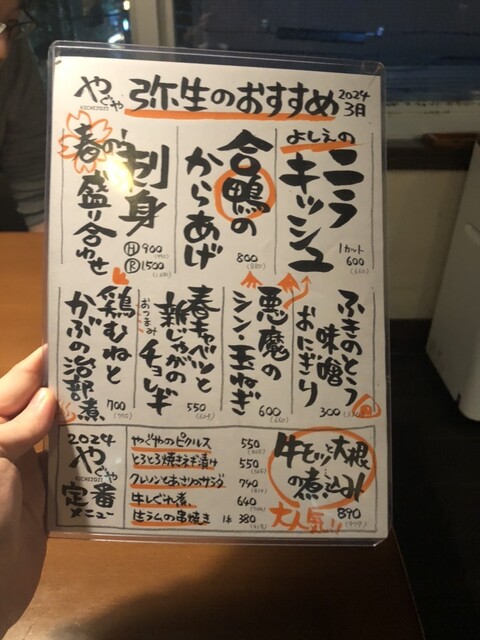 やぐや
KICHIJOJI
弥生のおすすめ
2024
3月
よしえの
ニラ
キッシュ
1カット
600
(660)
合鴨の
からあげ
800
(880)
春の
刺身
盛り合わせ
H 900
(990)
R 1500
(1650)
ふきのとう
味噌
おにぎり
300
(330)
悪魔の
シン・玉ねぎ
600
(660)
春キャベツと
新じゃがの
おつまみ
チョレギ
550
(605)
鶏むねと
かぶの治部煮
700
(770)
2024
やぐや
KICHIJOJI
定番
メニュー
やぐやのピクルス 550
(605)
とろとろ焼きねぎ漬け 550
(605)
クレソンとあさりのサラダ 740
(814)
牛しぐれ煮 640
(704)
生ラムの串焼き 1本 380
(418)
牛とっと大根
の煮込み
大人気!! 890
(979)